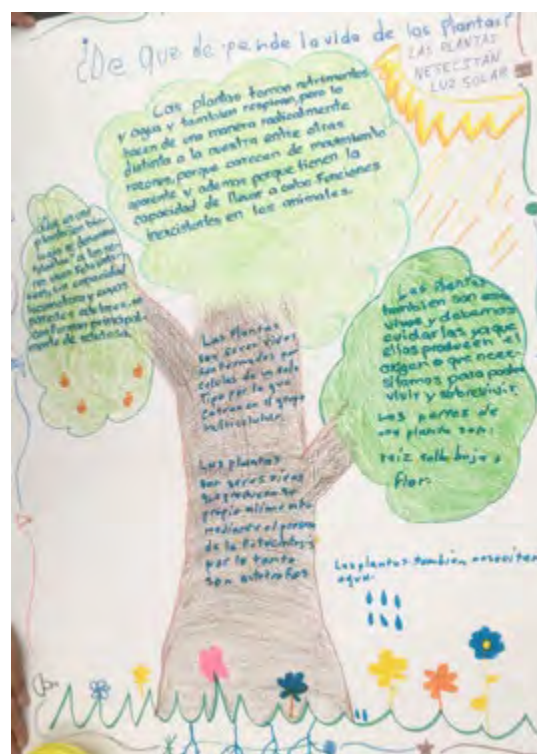 ¿De que depende la vida de las plantas?
LAS PLANTAS
NESECITAN
LUZ SOLAR
Las plantas toman nutrimentos
y agua y tambien respiran, pero lo
hacen de una manera radicalmente
distinta a la nuestra entre otras
razones, porque carecen de movimiento
aparente y ademas porque tienen la
capacidad de llevar a cabo funciones
inexistentes en los animales.
¿Que es una
planta?, en
se denomina
plantas a los se-
res vivos
sin capacidad
locomotora y cuyas
paredes celulares se
conforman principal-
mente de celulosa.
Las Plantas
son seres vivos
formados por
celulas de un solo
tipo por lo que
entran en el grupo
Las plantas
son seres vivos
que producen su
propio alimento
mediante el proceso
de la fotosintesis
por lo tanto
son autotrofos
Las plantas
tambien son seres
vivos y debemos
cuidarlas ya que
ellas producen el
oxigeno que nece-
sitamos para poder
vivir y sobrevivir.
Las partes de
una planta son:
raiz tallo hoja y
flor.
Las plantas tambien necesitan
agua.